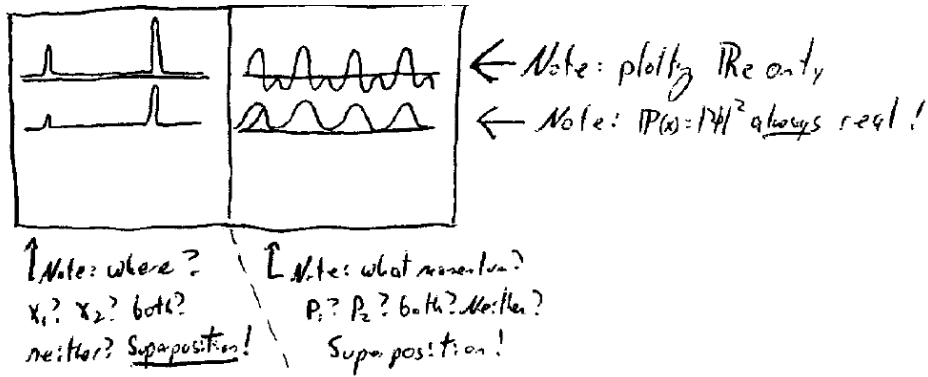 ← Note: plotting ℝe only
← Note: ℙ(x) = |ψ|² always real!
↑ Note: where?
x₁? x₂? both?
neither? Superposition!
Note: what momentum?
p₁? p₂? both? Neither?
Superposition!